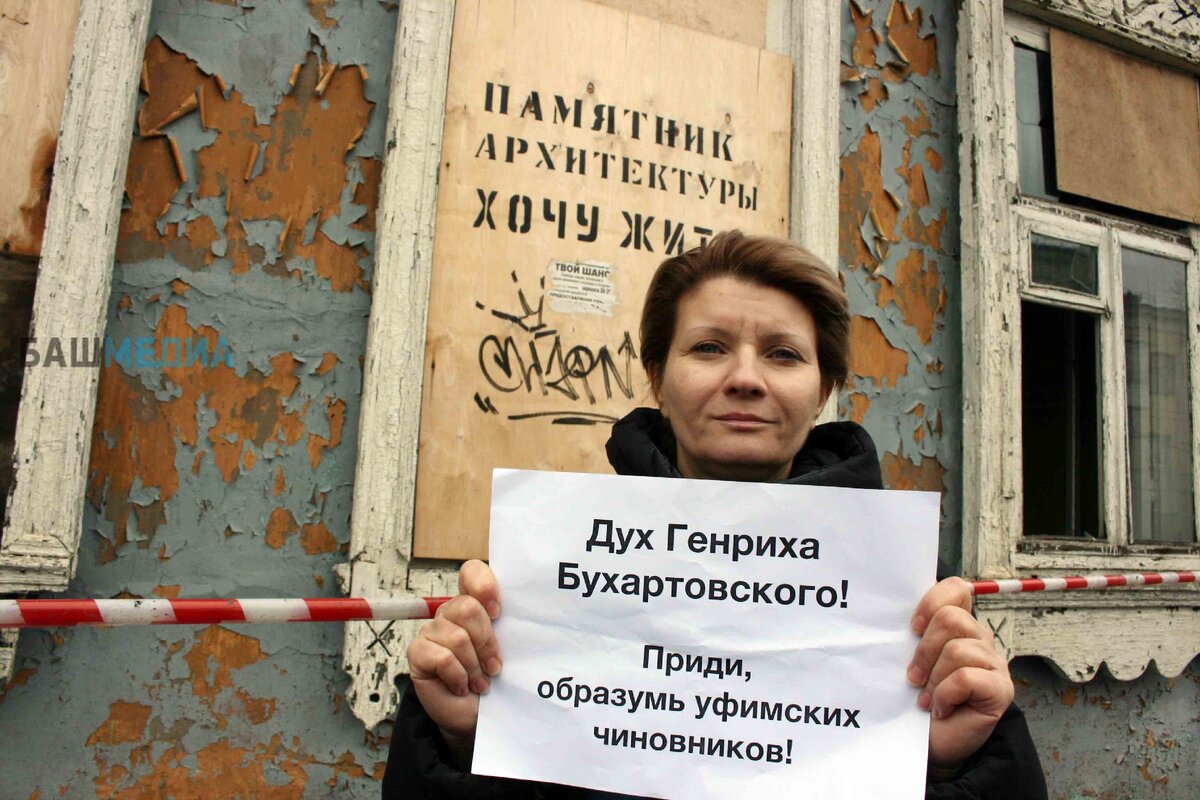 ПАМЯТНИК
АРХИТЕКТУРЫ
ХОЧУ ЖИТ
ТВОЙ ШАНС
БАШМЕДИА
Дух Генриха
Бухартовского!
Приди,
образумь уфимских
чиновников!